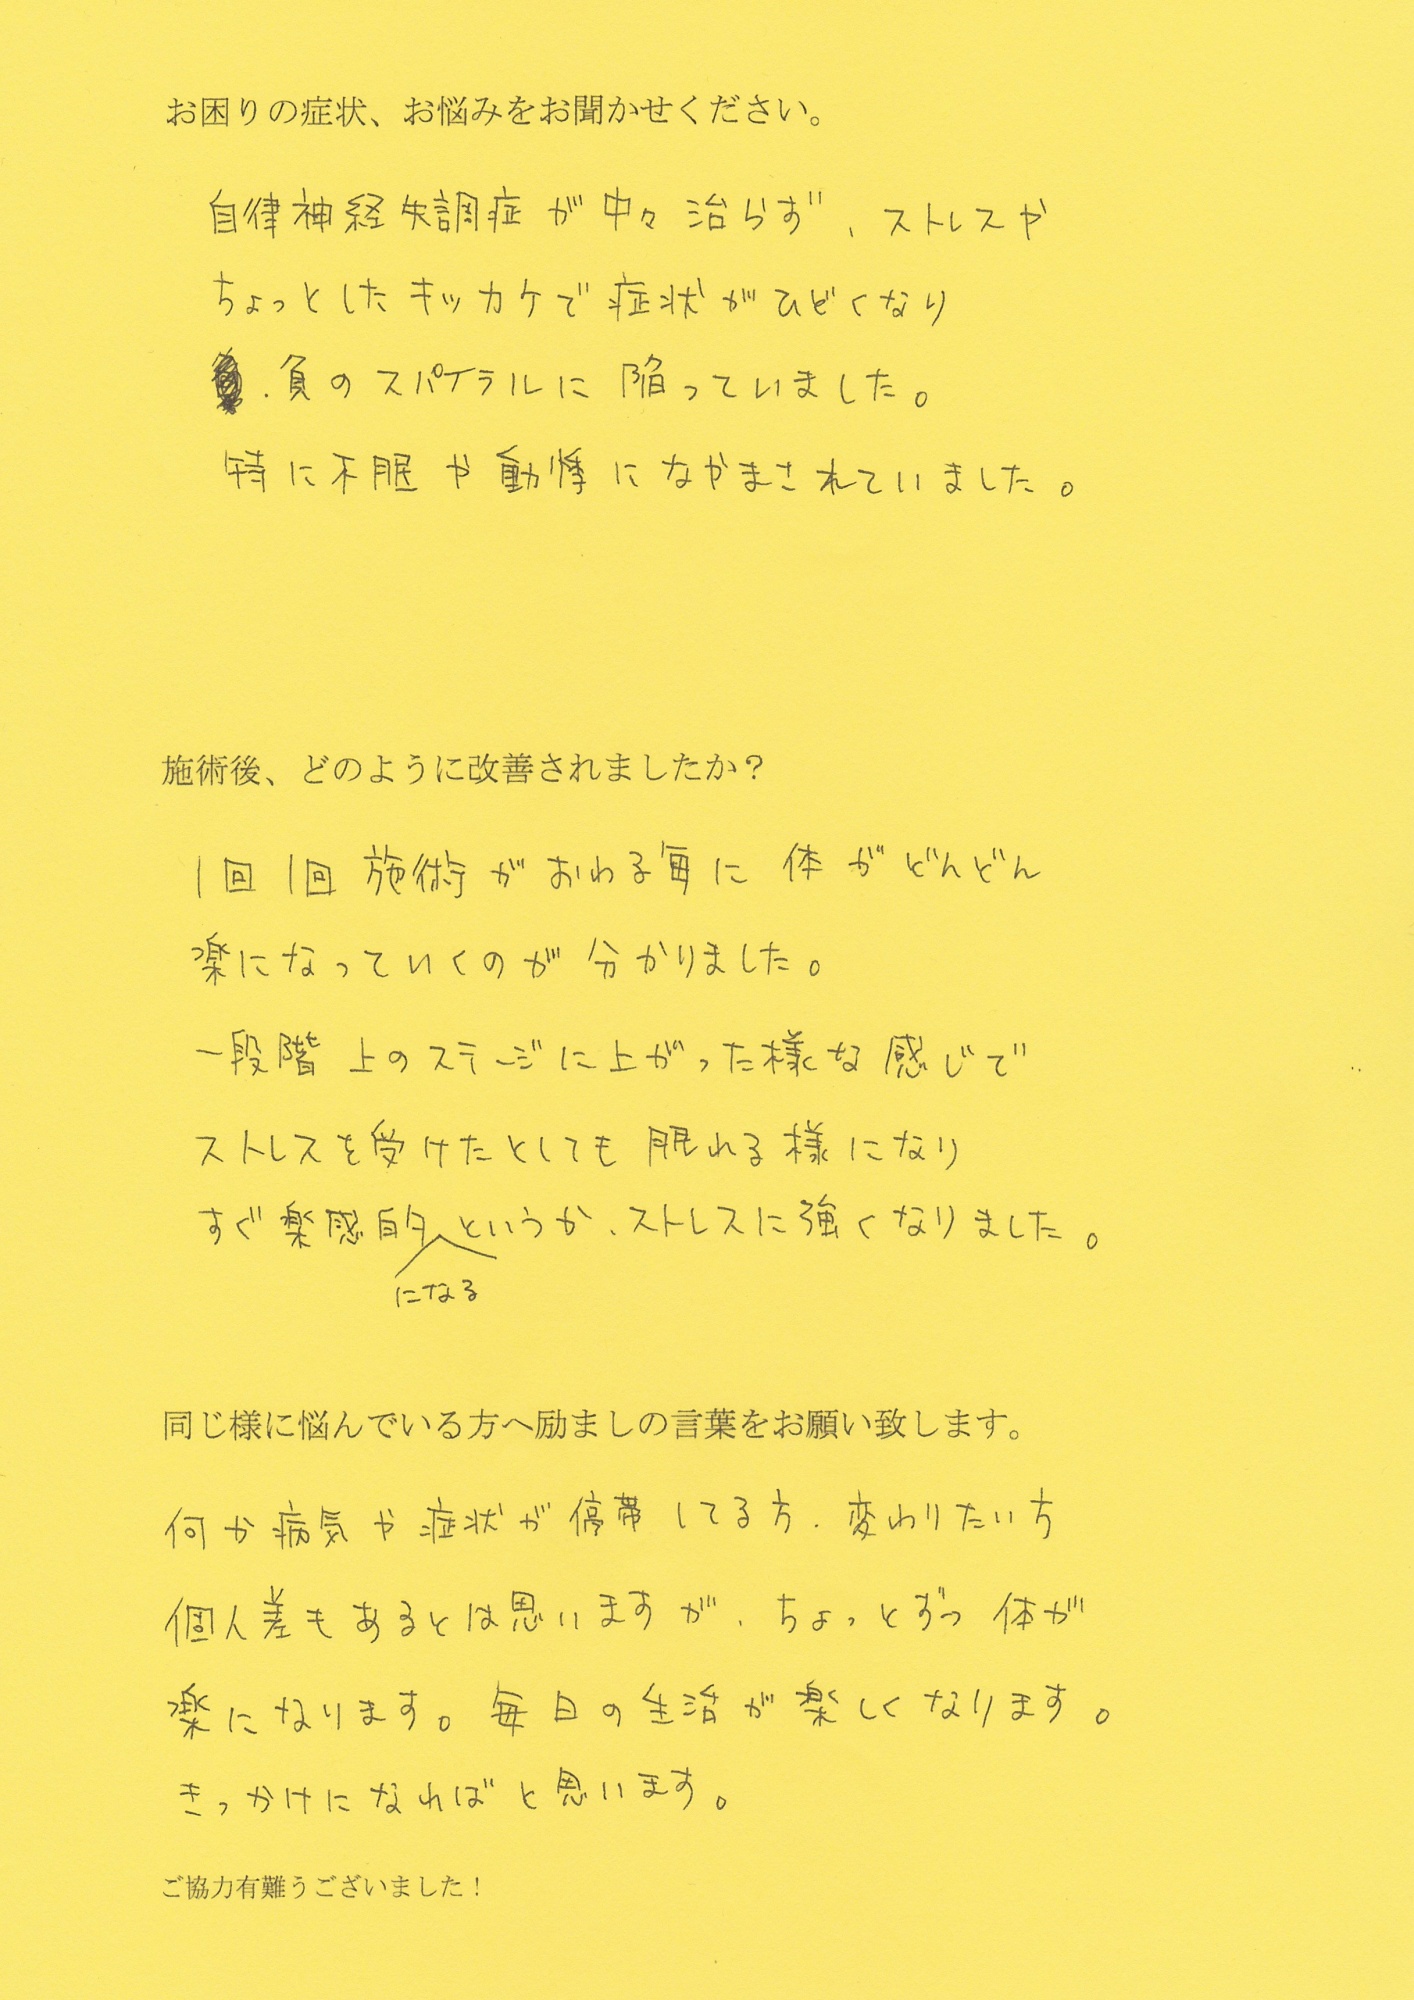 お困りの症状、お悩みをお聞かせください。
自律神経失調症が中々治らず、ストレスや
ちょっとしたキッカケで症状がひどくなり
負のスパイラルに陥っていました。
特に不眠や動悸になやまされていました。
施術後、どのように改善されましたか？
1回1回施術がおわる毎に体がどんどん
楽になっていくのが分かりました。
一段階上のステージに上がった様な感じで
ストレスを受けたとしても眠れる様になり
すぐ楽感的というか、ストレスに強くなりました。
になる
同じ様に悩んでいる方へ励ましの言葉をお願い致します。
何か病気や症状が停帯してる方、変わりたい方
個人差もあるとは思いますが、ちょっとずつ体が
楽になります。毎日の生活が楽しくなります。
きっかけになればと思います。
ご協力有難うございました！